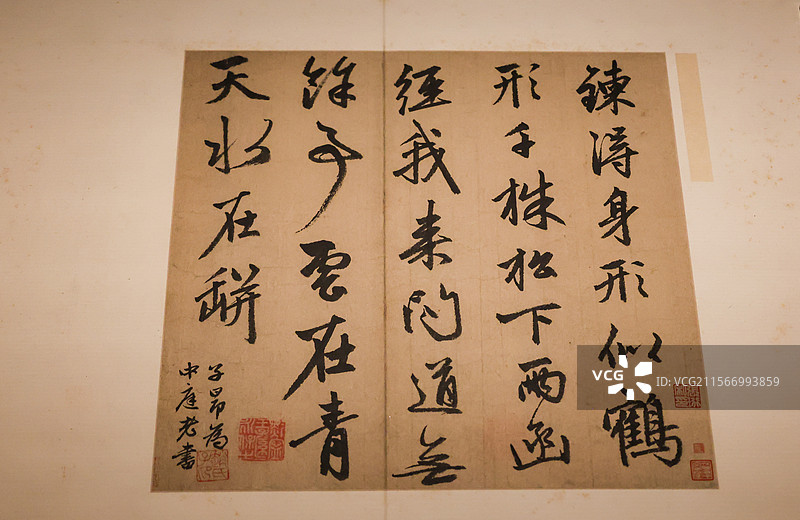 鍊得身形似鶴
形千株松下兩函
經我来问道無
餘事雲在青
天水在缾
子昂為
中庭老書
VCG
VCG211566993859